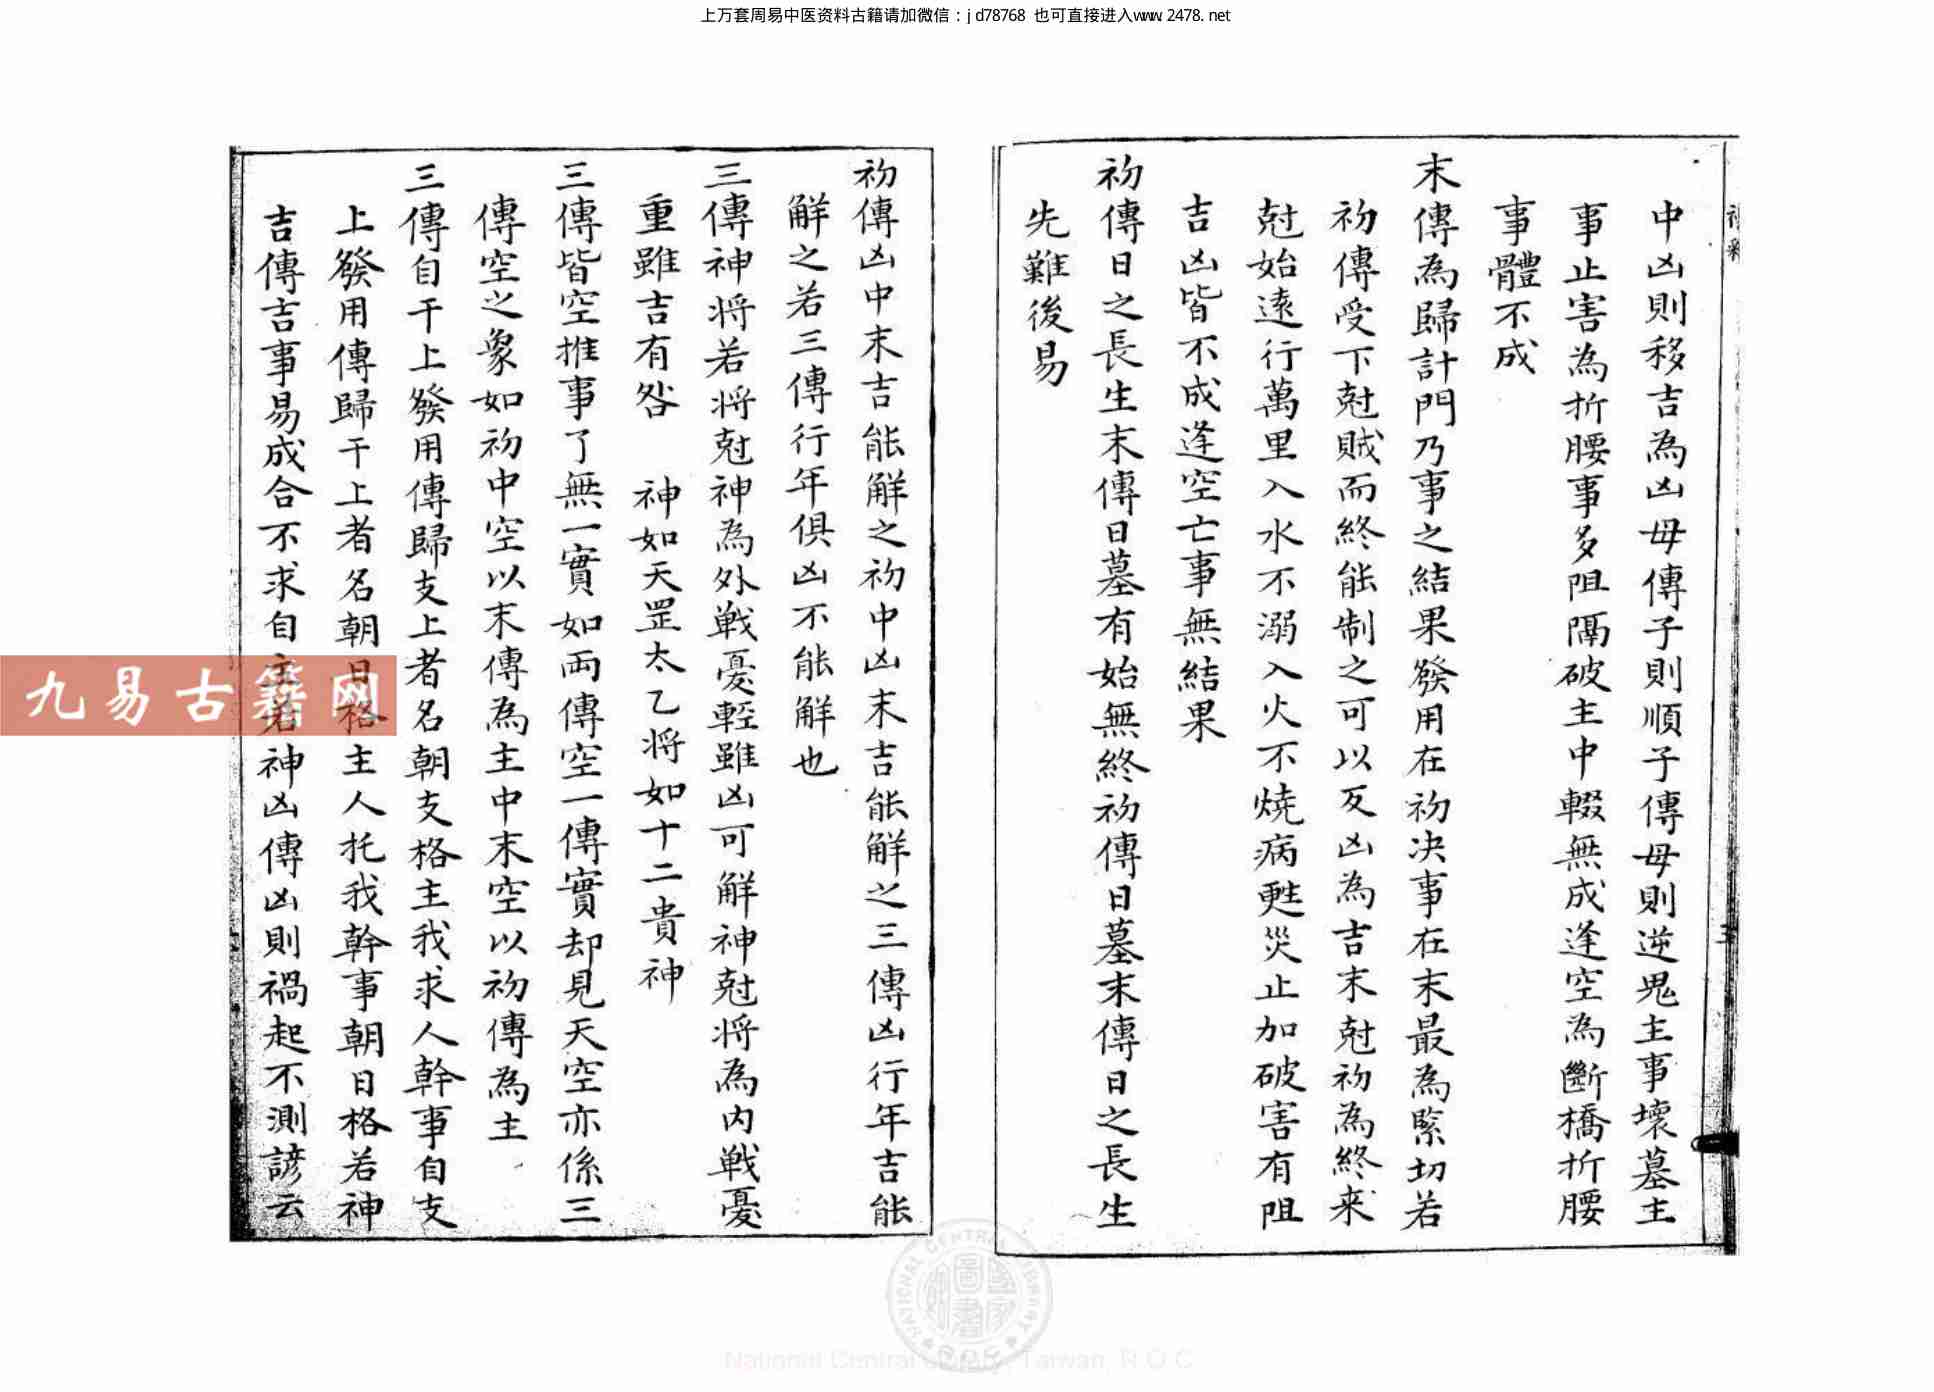 上万套周易中医资料古籍请加微信：jd78768 也可直接进入www.2478.net
中凶則移吉為凶母傳子則順子傳母則逆鬼主事壞墓主
事止害為折腰事多阻隔破主中輟無成逢空為斷橋折腰
事體不成
末傳為歸計門乃事之結果發用在初决事在末最為緊切若
初傳受下尅賊而終能制之可以反凶為吉末尅初為終来
尅始逺行萬里入水不溺入火不燒病甦災止加破害有阻
吉凶皆不成逢空亡事無結果
初傳日之長生末傳日墓有始無終初傳日墓末傳日之長生
先難後易
初傳凶中末吉能解之初中凶末吉能解之三傳凶行年吉能
解之若三傳行年俱凶不能解也
三傳神将若将尅神為外戦憂輕雖凶可解神尅将為内戦憂
重雖吉有咎 神如天罡太乙将如十二貴神
三傳皆空推事了無一實如両傳空一傳實却見天空亦係三
傳空之象如初中空以末傳為主中末空以初傳為主
三傳自干上發用傳歸支上者名朝支格主我求人幹事自支
上發用傳歸干上者名朝日格主人托我幹事朝日格若神
吉傳吉事易成合不求自主若神凶傳凶則禍起不測諺云
九易古籍网
國家圖書館
NATIONAL CENTRAL LIBRARY
National Central Library, Taiwan, R.O.C